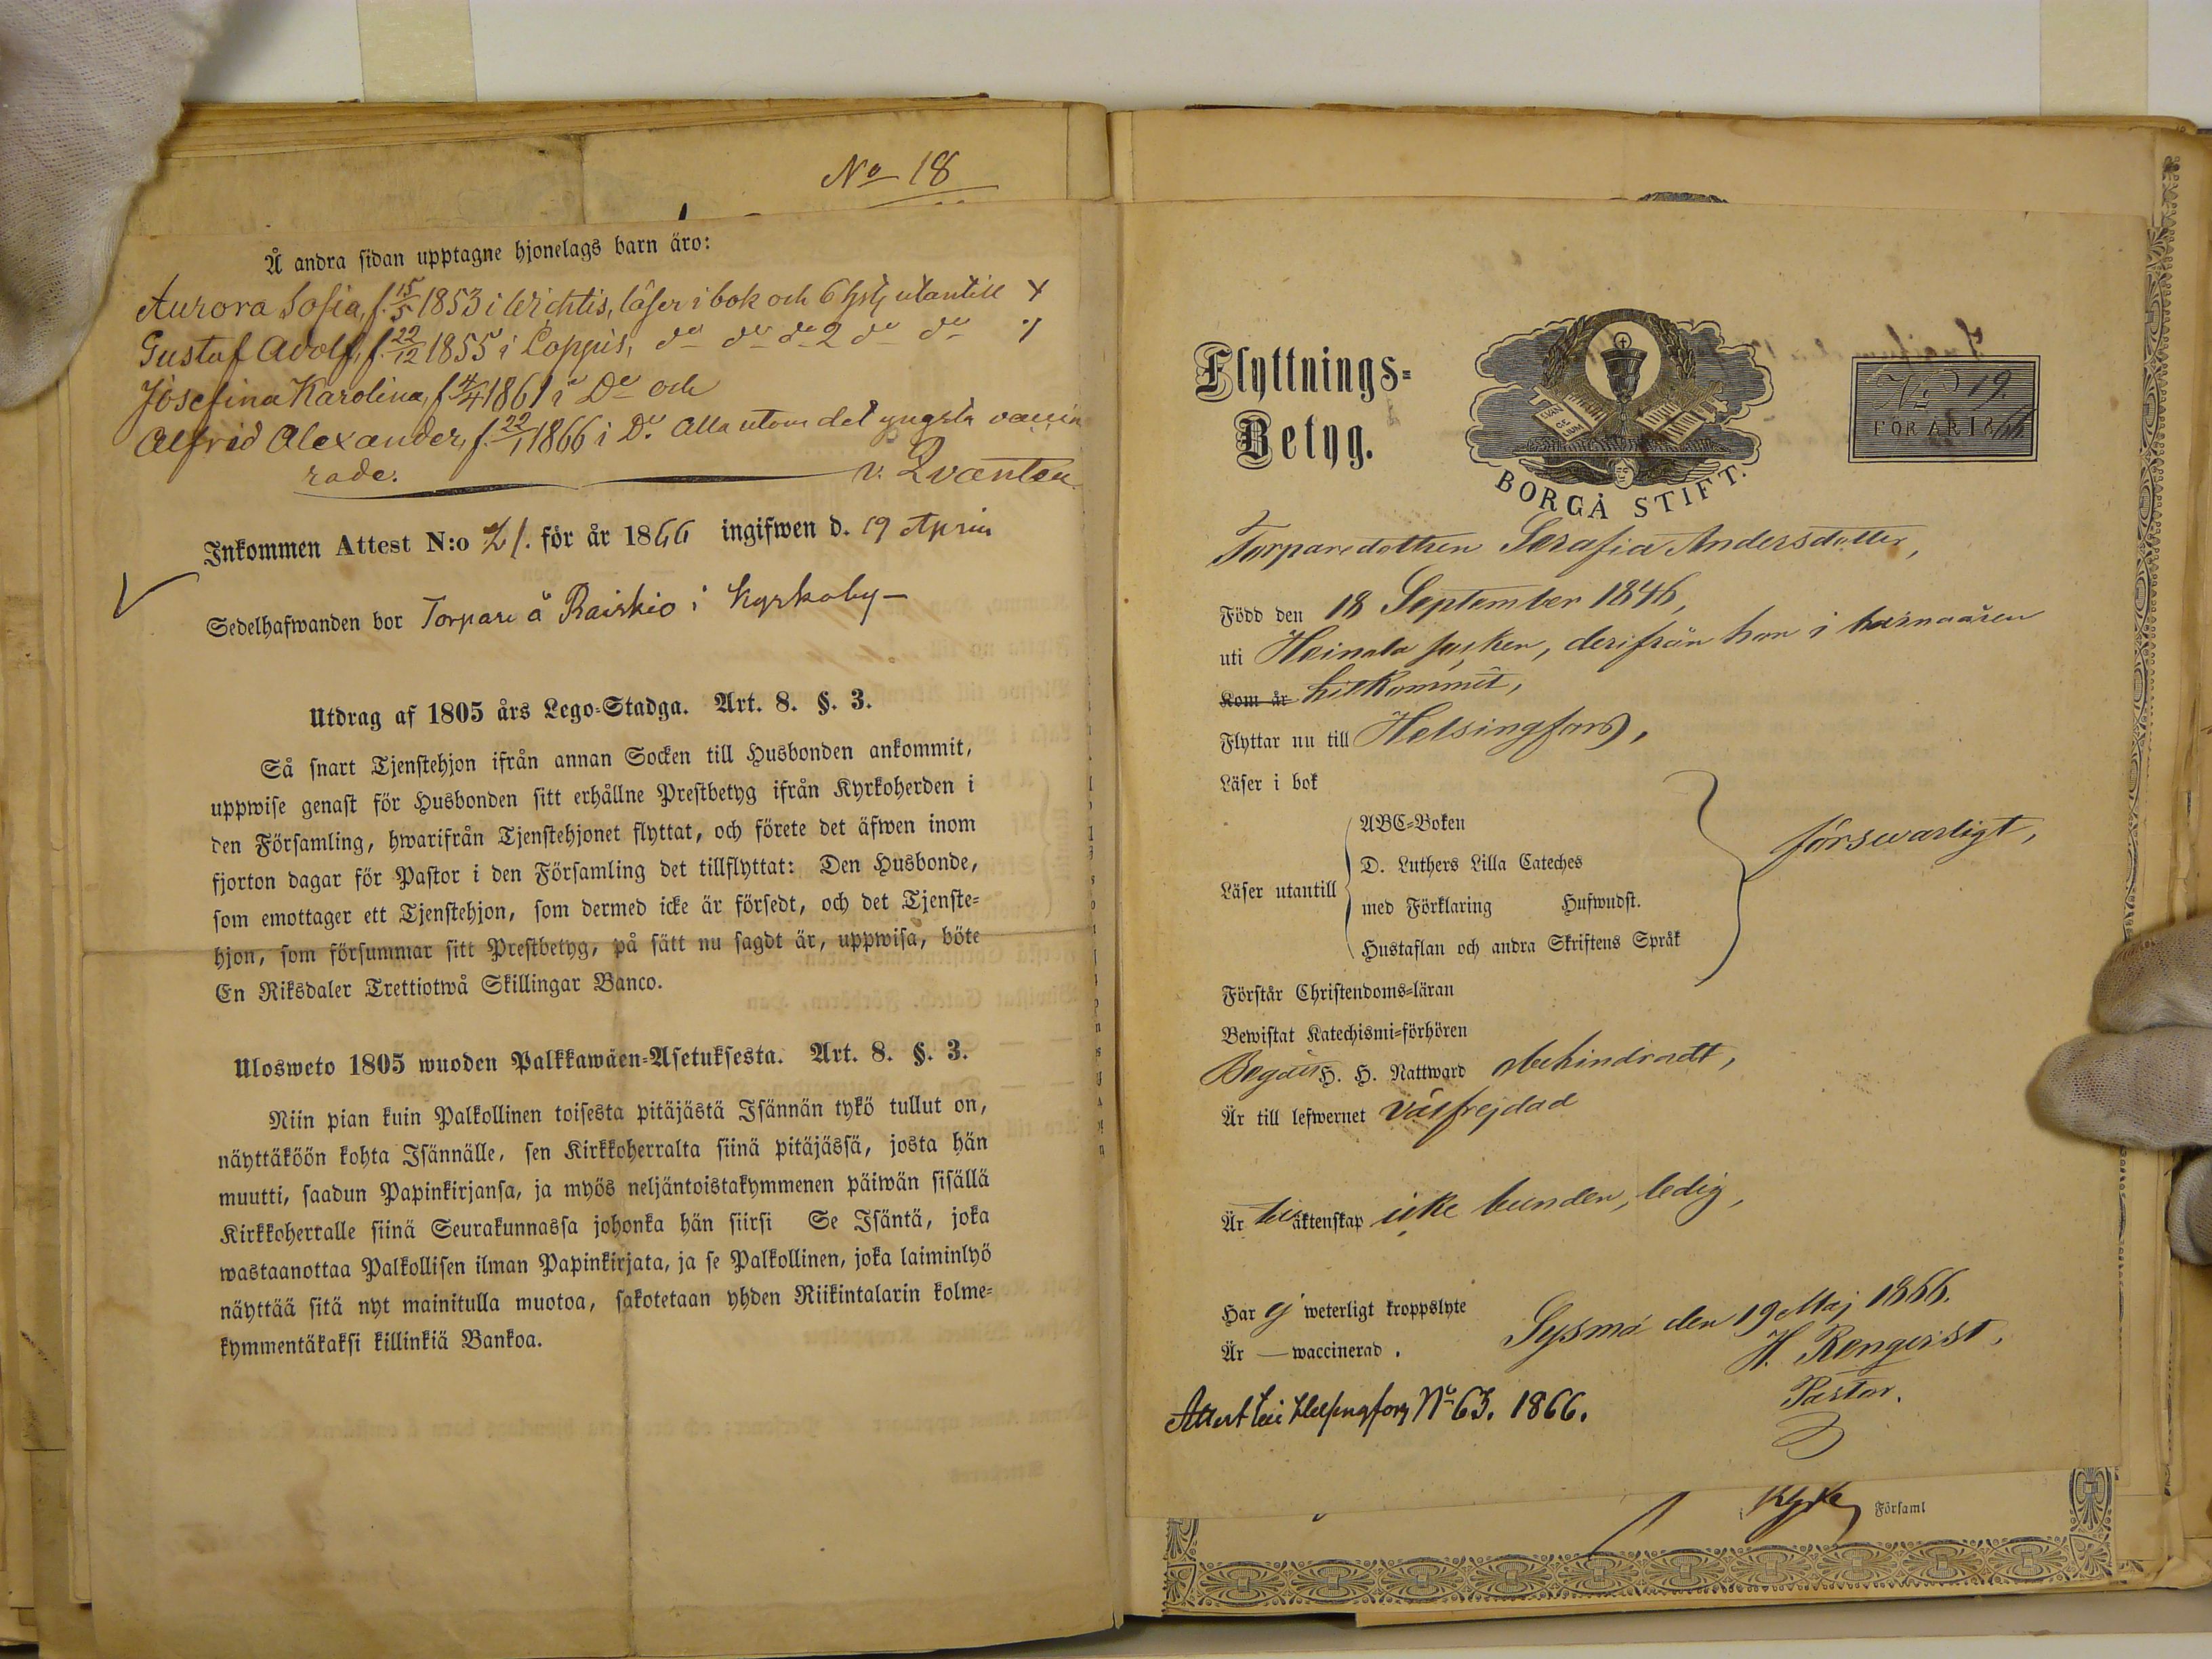 No 18
Å andra sidan upptagne hjonelags barn äro:
Aurora Sofia, f. 15/5 1853 i Wichtis, läser i bok och 6 hst utantill x
Gustaf Adolf, f. 22/12 1855 i Loppis, do do do 2 do do
Josefina Karolina, f. 4/4 1861 i Do och
Alfrid Alexander, f. 22/1 1866 i Do. Alla utom det yngsta vaccin
rade. v. Qvanten
Inkommen Attest N:o 21. för år 1866 ingifwen d. 19 April
Sedelhafwanden bor Torpare å Raiskio i Kyrkoby
Utdrag af 1805 års Lego-Stadga. Art. 8. §. 3.
Så snart Tjenstehjon ifrån annan Socken till Husbonden ankommit,
uppwise genast för Husbonden sitt erhållne Prestbetyg ifrån Kyrkoherden i
den Församling, hwarifrån Tjenstehjonet flyttat, och förete det äfwen inom
fjorton dagar för Pastor i den Församling det tillflyttat: Den Husbonde,
som emottager ett Tjenstehjon, som dermed icke är försedt, och det Tjenste-
hjon, som försummar sitt Prestbetyg, på sätt nu sagdt är, uppwisa, böte
En Riksdaler Trettiotwå Skillingar Banco.
Ulosweto 1805 wuoden Palkkawäen-Asetuksesta. Art. 8. §. 3.
Niin pian kuin Palkollinen toisesta pitäjästä Isännän tykö tullut on,
näyttäköön kohta Isännälle, sen Kirkkoherralta siinä pitäjässä, josta hän
muutti, saadun Papinkirjansa, ja myös neljäntoistakymmenen päiwän sisällä
Kirkkoherralle siinä Seurakunnassa johonka hän siirsi Se Isäntä, joka
wastaanottaa Palkollisen ilman Papinkirjata, ja se Palkollinen, joka laiminlyö
näyttää sitä nyt mainitulla muotoa, sakotetaan yhden Riikintalarin kolme-
kymmentäkaksi killinkiä Bankoa.
Flyttnings-
Betyg.
EVAN
GE
LIUM
BORGÅ STIFT.
No 19.
FÖR ÅR 1866
Torparedottren Serafia Andersdotter,
Född den 18 September 1846,
uti Heinola socken, derifrån hon i barnaåren
Kom år hitkommit,
Flyttar nu till Helsingfors,
Läser i bok
Läser utantill
ABC-Boken
D. Luthers Lilla Cateches
med Förklaring Hufwudst.
Hustaflan och andra Skriftens Språk
försvarligt,
Förstår Christendoms-läran
Bewistat Katechismi-förhören
Begått H. H. Nattward obehindradt,
Är till lefwernet välfrejdad
Är till äktenskap icke bunden, ledig,
Har ej weterligt kroppslyte
Är — waccinerad.
Sysmä den 19 Maj 1866.
H. Renqvist,
Pastor.
Attest till Helsingfors No 63. 1866.
i Kyrko Församl